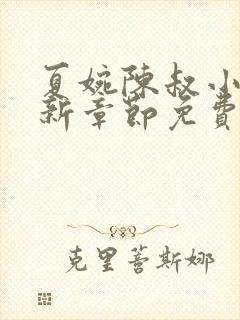 夏婉陈叔小
新章節免費
克里蒂斯娜